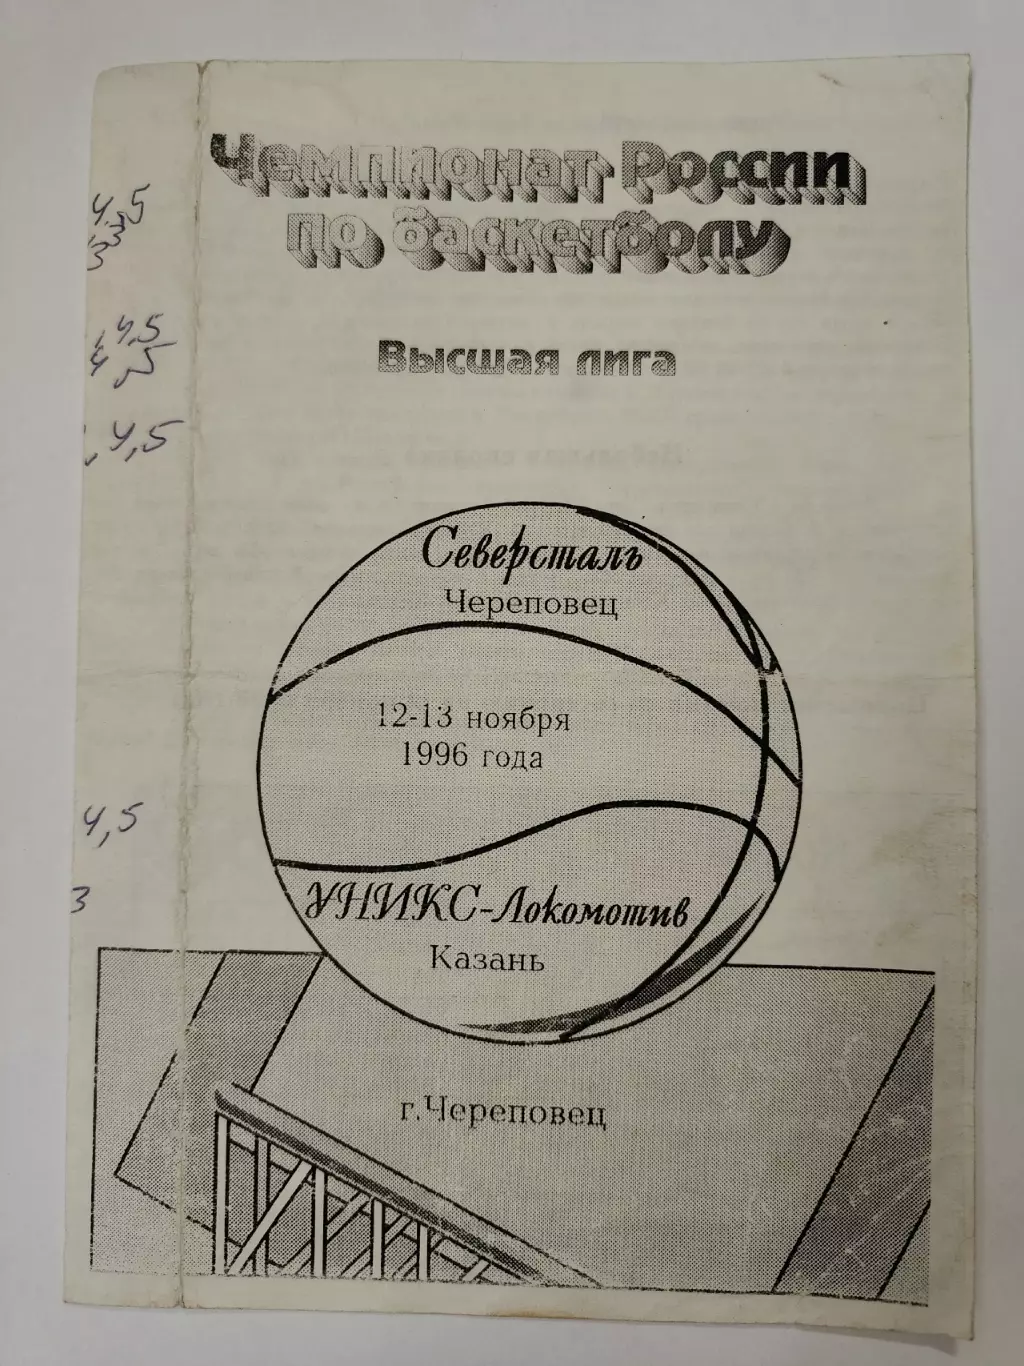 Чемпионат России
по баскетболу
4,5
3
Высшая лига
4,5
4,5
Северсталь
Череповец
12-13 ноября
1996 года
4,5
УНИКС-Локомотив
3
Казань
г.Череповец